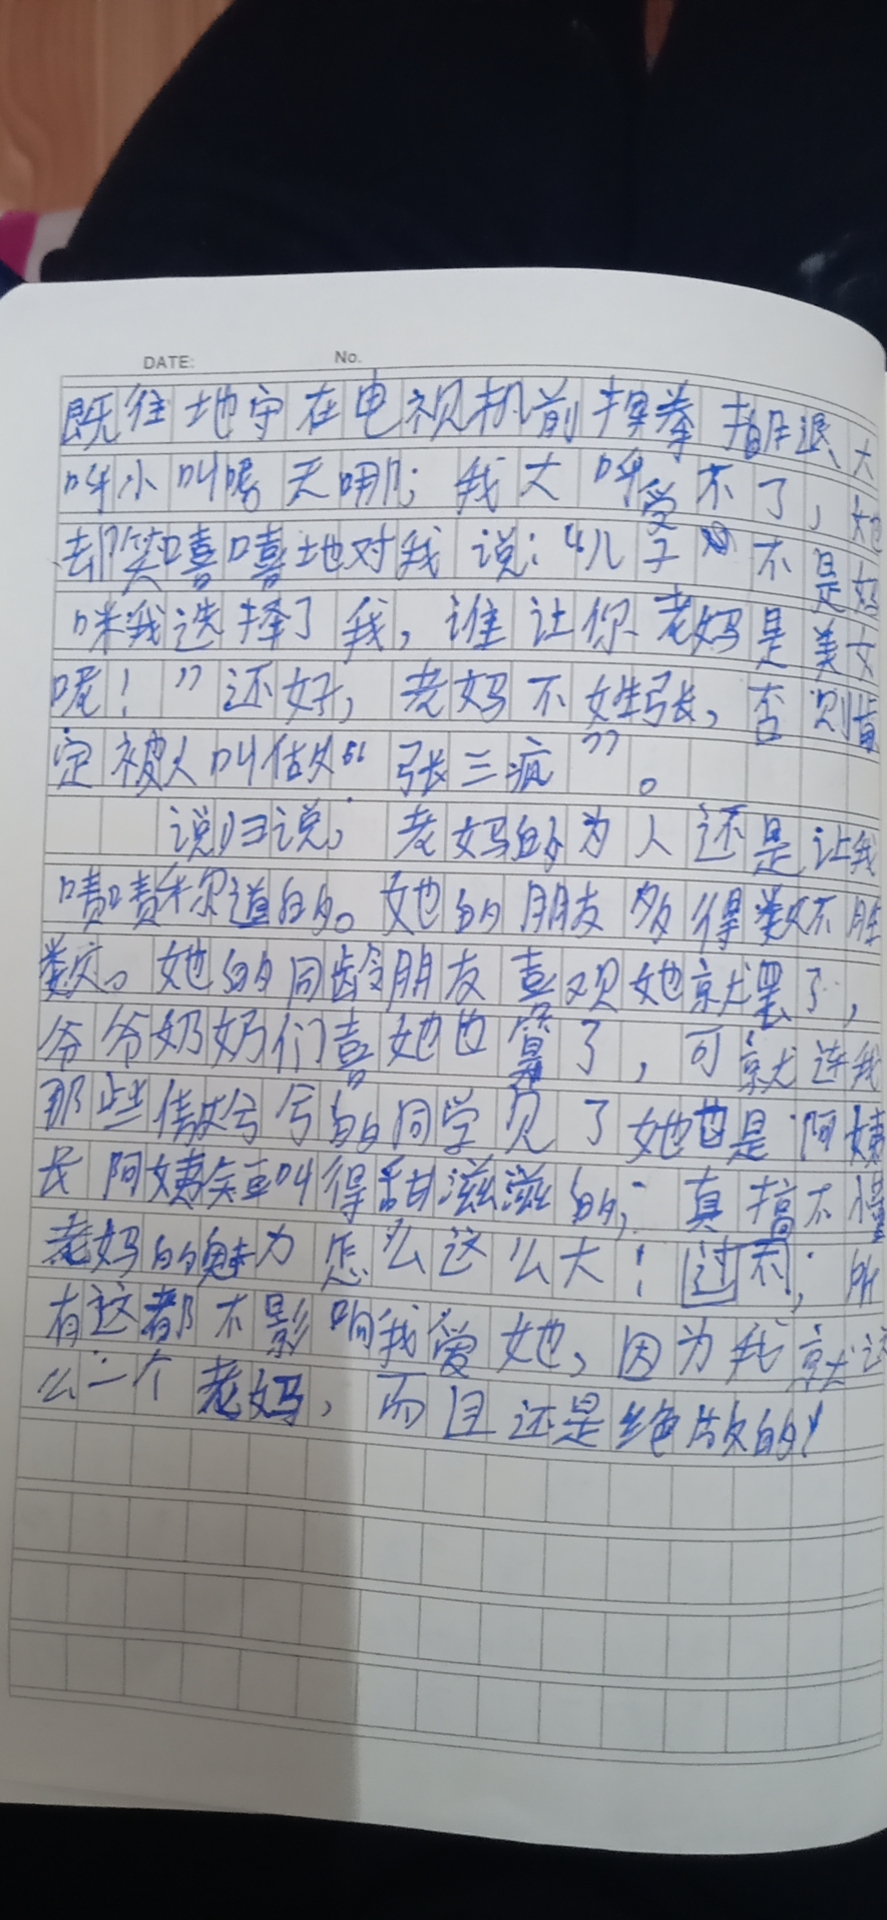 DATE: No.
既往地守在电视机前挥拳 踢腿、大
呼小叫喝天哪；我大呼受不了，她
却笑嘻嘻地对我说：“儿子 不是妈
咪我选择了我，谁让你老妈是美女
呢！”还好，老妈不姓张，否则肯
定被人叫做“张三疯”。
说归说；老妈的为人还是让我
啧啧称道的。她的朋友多得数不胜
数。她的同龄朋友喜欢她就罢了，
爷爷奶奶们喜她也算了，可就连我
那些 兮兮的同学见了她也是阿姨
长阿姨短叫得甜滋滋的；真搞不懂
老妈的魅力怎么这么大！过不；所
有这都不影响我爱她，因为我就这
么一个老妈，而且还是绝版的！